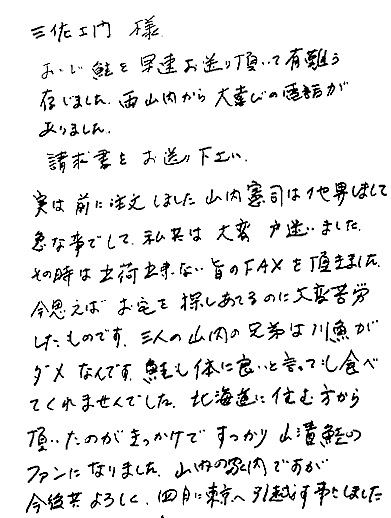 三佐ヱ門 様
おいしい鮭を早速お送り頂いて有難う
存じました。両山内から大喜びの電話が
ありました。
請求書を お送り下さい。
実は前に注文しました山内憲司は他界しまして
急な事でして、私共は大変戸迷いました。
その時は出荷出来ない旨のFAXを頂きました。
今思えばお宅を探しあてるのに大変苦労
したものです。三人の山内の兄弟は川魚が
ダメなんです。鮭も体に良いと言っても食べ
てくれませんでした。北海道に住む方から
頂いたのがきっかけですっかり山漬鮭の
ファンになりました。山内の家内ですが
今後共よろしく。四月に東京へ引越す事としました